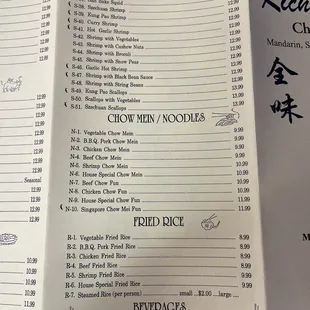 Salt Squid
S-38. Szechuan Shrimp 12.99
S-39. Kung Pao Shrimp 12.99
S-40. Curry Shrimp 12.99
S-41. Hot Garlic Shrimp 12.99
S-42. Shrimp with Vegetables 12.99
S-43. Shrimp with Cashew Nuts 12.99
S-44. Shrimp with Broccoli 12.99
S-45. Shrimp with Snow Peas 12.99
S-46. Garlic Hot Shrimp 12.99
S-47. Shrimp with Black Bean Sauce 12.99
S-48. Shrimp with String Beans 12.99
S-49. Kung Pao Scallops 13.99
S-50. Scallops with Vegetables 13.99
S-51. Szechuan Scallops 13.99
CHOW MEIN / NOODLES
N-1. Vegetable Chow Mein 9.99
N-2. B.B.Q. Pork Chow Mein 9.99
N-3. Chicken Chow Mein 9.99
N-4. Beef Chow Mein 9.99
N-5. Shrimp Chow Mein 9.99
N-6. House Special Chow Mein 9.99
N-7. Beef Chow Fun 9.99
N-8. Chicken Chow Fun 9.99
N-9. House Special Chow Fun 9.99
N-10. Singapore Chow Mei Fun 11.99
FRIED RICE
R-1. Vegetable Fried Rice 8.99
R-2. B.B.Q. Pork Fried Rice 8.99
R-3. Chicken Fried Rice 8.99
R-4. Beef Fried Rice 8.99
R-5. Shrimp Fried Rice 8.99
R-6. House Special Fried Rice 8.99
R-7. Steamed Rice (per person) small ..$2.00 ...large
BEVERAGES
12.99
12.99
12.99
12.99
Seasonal
12.99
12.99
12.99
10.99
10.99
10.99
10.99
10.99
Rich
Ch
Mandarin, S
全
味
M